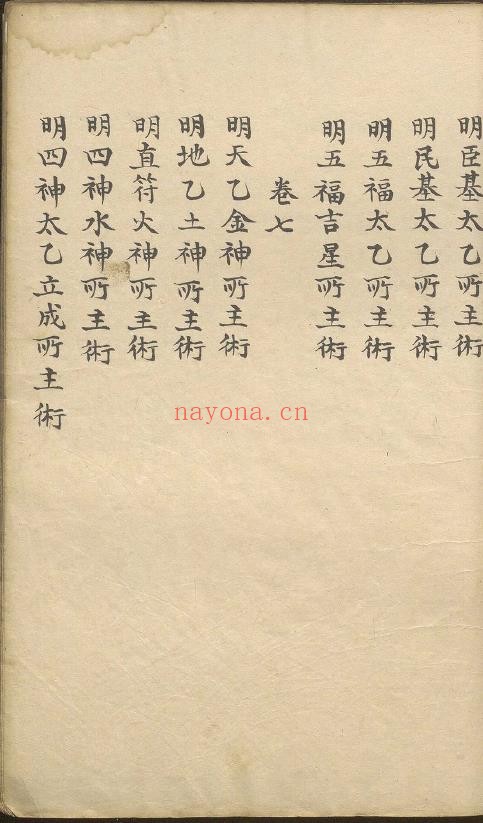 明臣基太乙所主術
明民基太乙所主術
明五福太乙所主術
明五福吉星所主術
卷七
明天乙金神所主術
明地乙土神所主術
明直符火神所主術
明四神水神所主術
明四神太乙立成所主術
nayona.cn